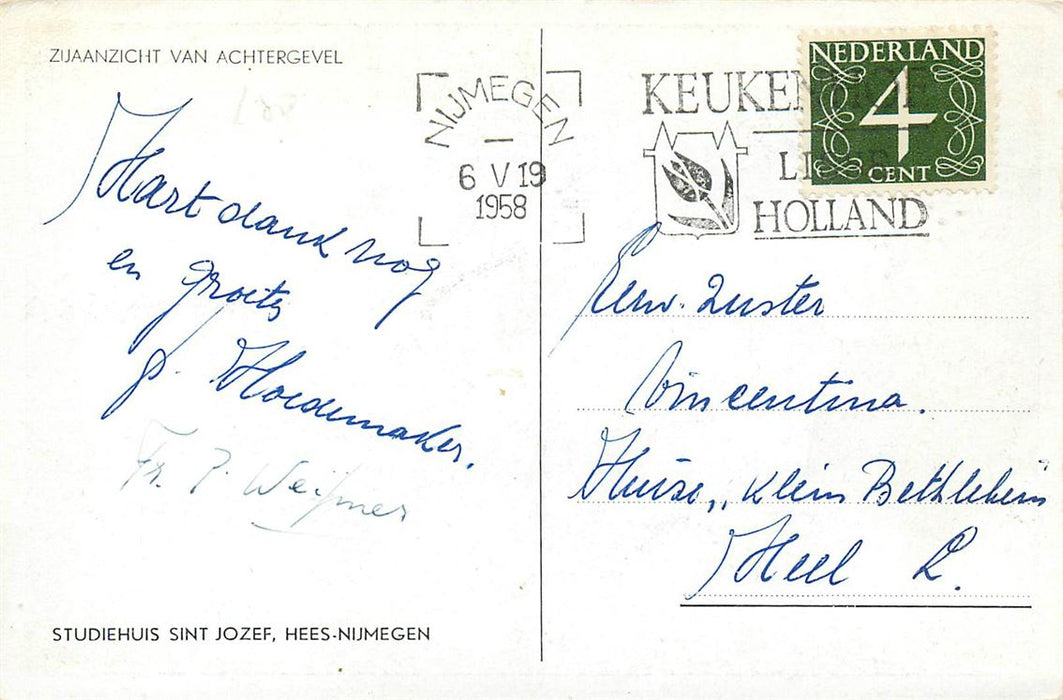 ZIJAANZICHT VAN ACHTERGEVEL
Hart dank nog
en groetes
P. Hoedemaker.
Fr. J. Weijmer
STUDIEHUIS SINT JOZEF, HEES-NIJMEGEN
NIJMEGEN
6 V 19
1958
KEUKENHOF
LISSE
HOLLAND
NEDERLAND
4
CENT
Eerw. Zuster
Vincentina.
Huize „ Klein Bethlehem
Heel L.